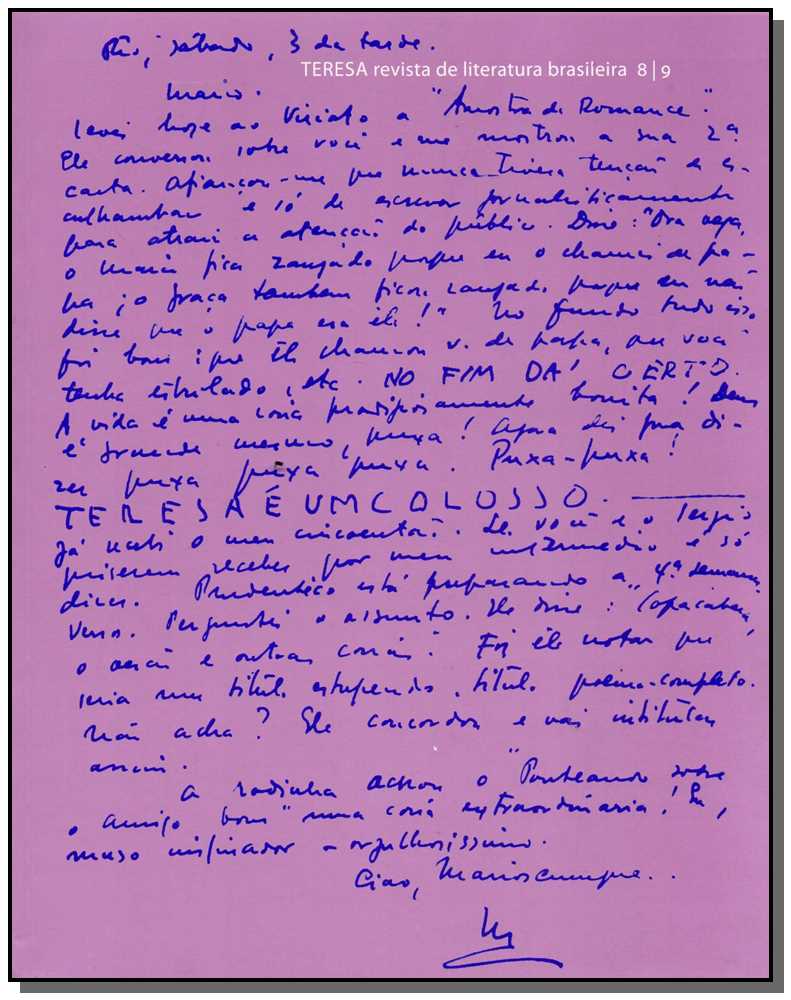 Rio, sábado, 3 da tarde.
TERESA revista de literatura brasileira 8 | 9
Mario.
Levei hoje ao Viriato a "Amostra de Romance".
Ele conversou sobre você e me mostrou a sua 2ª
carta. Afiançou-me que nunca tivera tenção de es-
culhambar e só de escrever jornalisticamente
para atrair a atenção do público. Disse: "Ora veja,
o Mario fica zangado porque eu o chamei de pa-
pa; o Graça também ficou zangado porque eu não
disse que o papa era ele!" No fundo tudo isso
foi bom: que ele chamou v. de papa, que você
tenha estrilado, etc. NO FIM DÁ CERTO.
A vida é uma coisa prodigiosamente bonita! Deus
é grande mesmo, puxa! Agora dei pra di-
zer puxa puxa puxa. Puxa-puxa!
TERESA É UM COLOSSO.
Já recebi o meu cincoentão. Se você e o Sergio
quiserem receber por meu intermedio é só
dizer. Prudentico está preparando a 4ª semana.
Verso. Perguntei o assunto. Ele disse: Copacabana,
o avião e outras coisas. Fiz ele notar que
seria um título estupendo, título poema-completo.
Não acha? Ele concordou e vai intitular
assim.
A rodinha achou o "Ponteando sobre
o amigo bom" uma coisa extraordinaria! Eu,
muso inspirador - orgulhosissimo.
Ciao, Marioscumque..
M